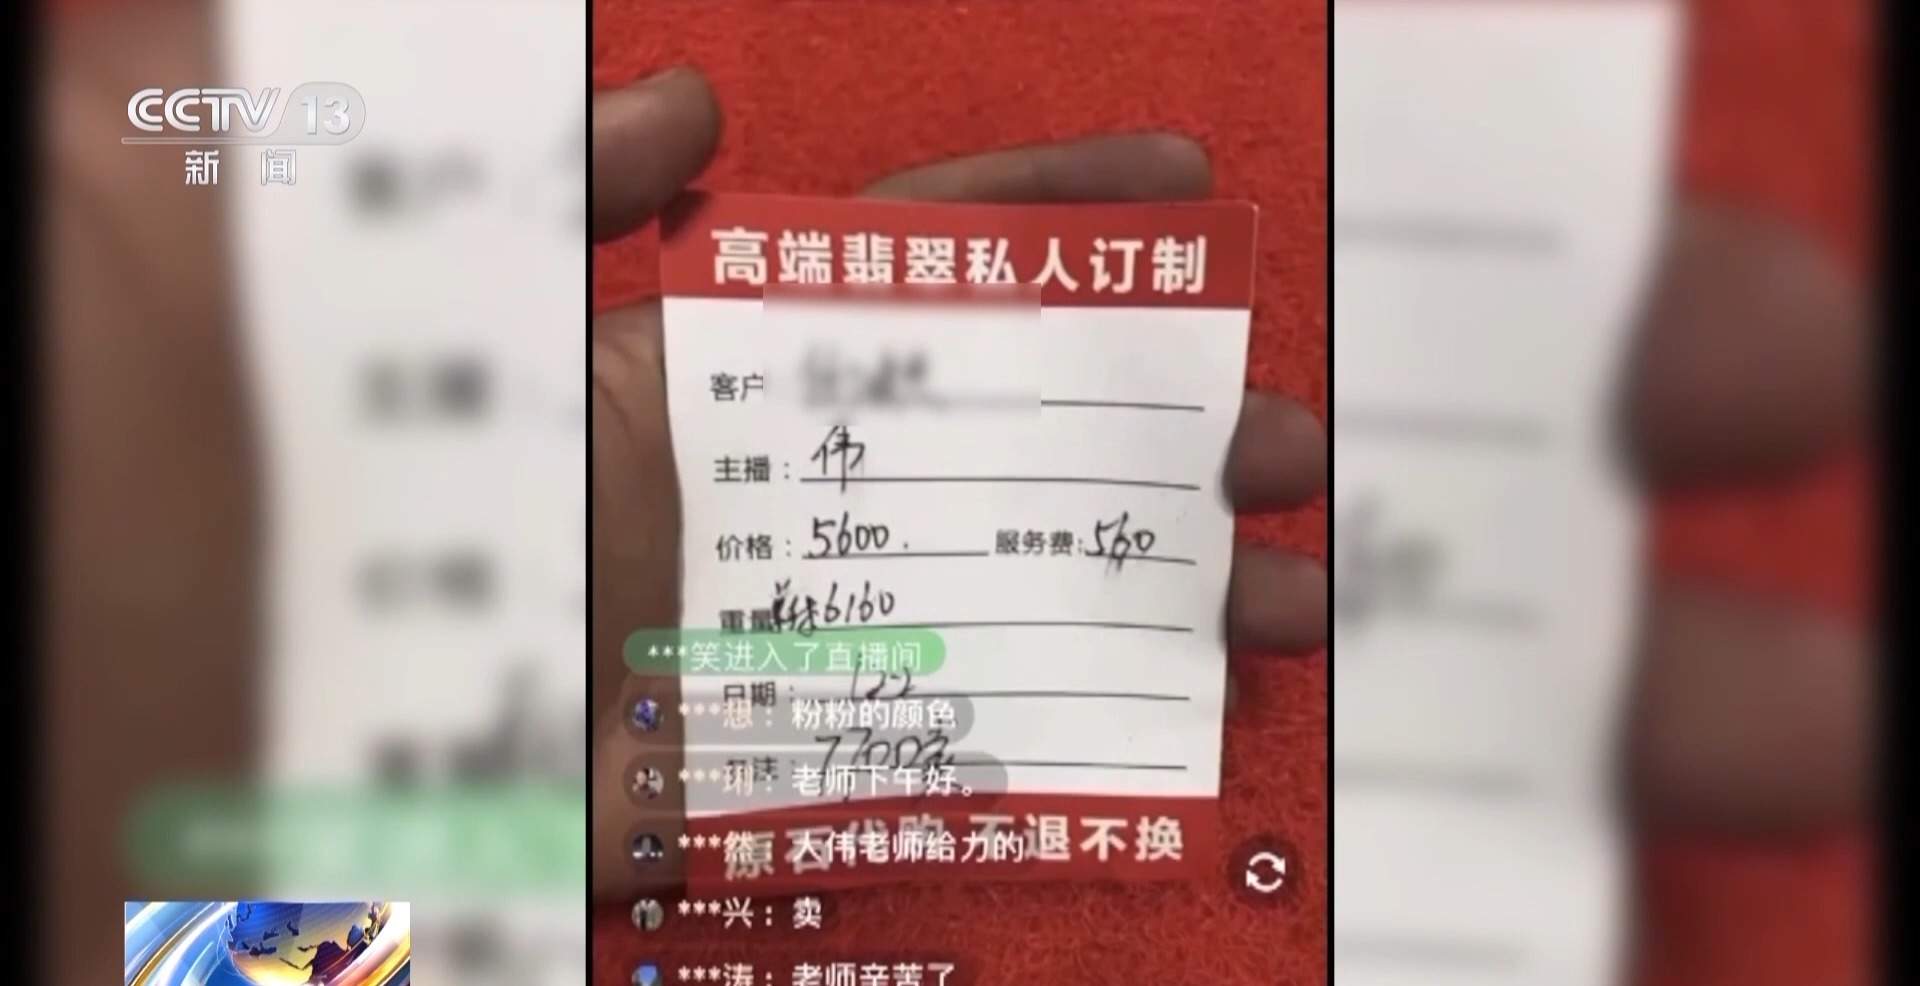 CCTV 13
新闻
高端翡翠私人订制
客户
主播：伟
价格：5600. 服务费:560
重量 6160
***笑进入了直播间
日期： 122
***想：粉粉的颜色
***琍：老师下午好。
***然：大伟老师给力的
原石代购 不退不换
***兴：卖
***涛：老师辛苦了